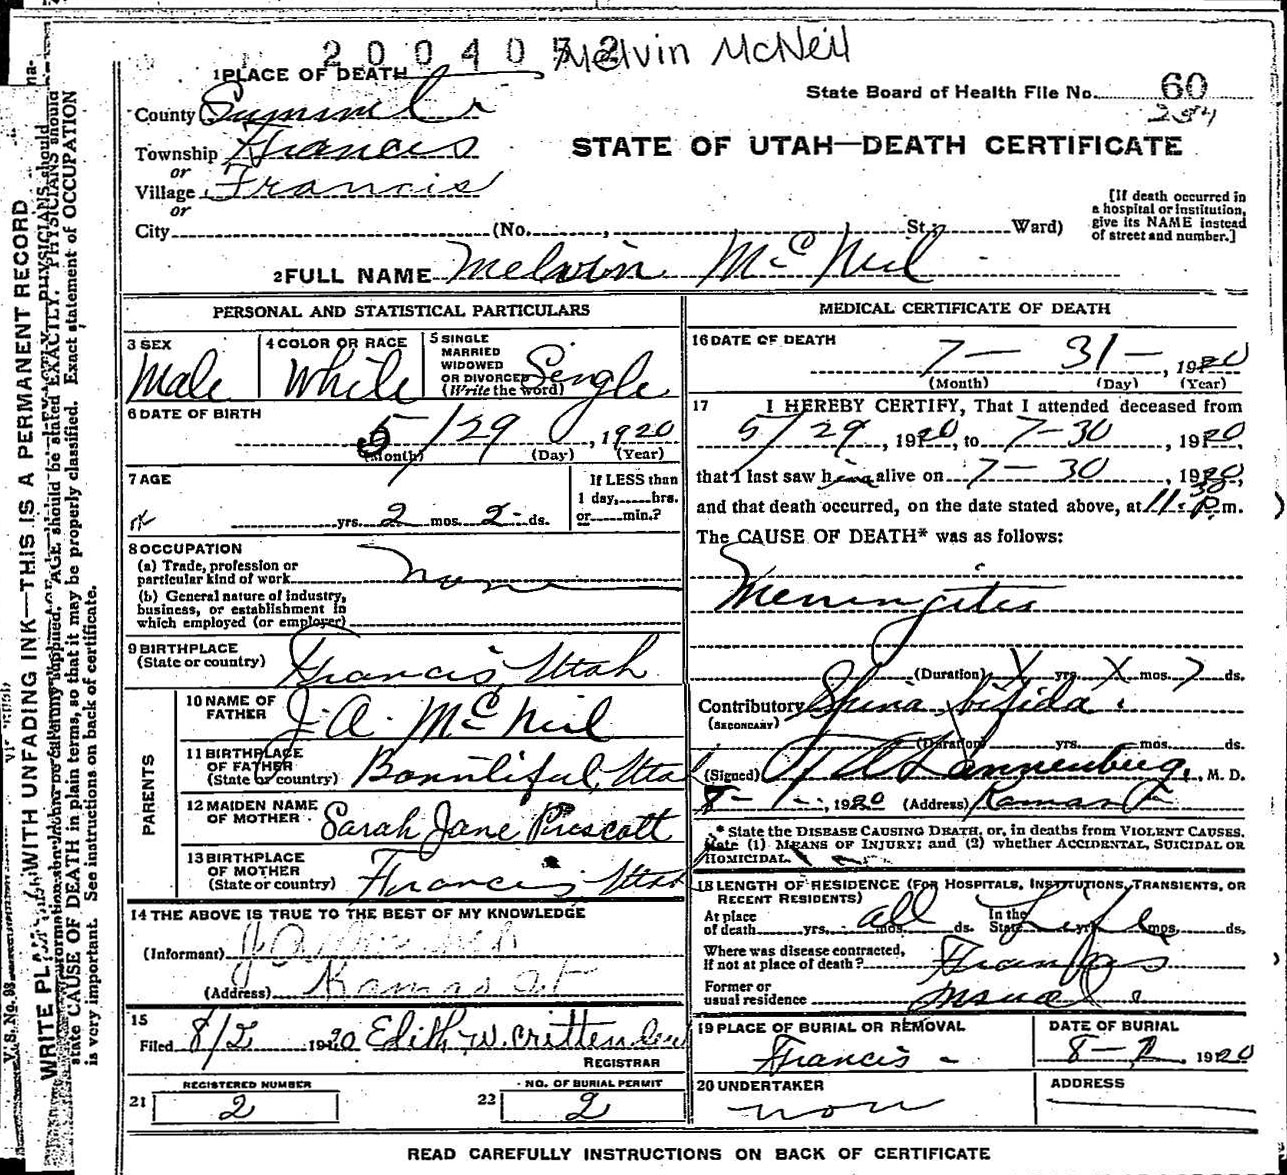 2004052 Melvin McNeil
1 PLACE OF DEATH
State Board of Health File No. 60
234
County Summit
Township Francis
or
Village Francis
or
City (No. , St.; Ward)
STATE OF UTAH—DEATH CERTIFICATE
[If death occurred in
a hospital or institution,
give its NAME instead
of street and number.]
2 FULL NAME Melvin McNeil
PERSONAL AND STATISTICAL PARTICULARS
3 SEX
Male
4 COLOR OR RACE
White
5 SINGLE
MARRIED
WIDOWED
OR DIVORCED
(Write the word)
Single
6 DATE OF BIRTH
5/29, 1920
(Month) (Day) (Year)
7 AGE
yrs. 2 mos. 2 ds.
If LESS than
1 day, hrs.
or min.?
8 OCCUPATION
(a) Trade, profession or
particular kind of work none
(b) General nature of industry,
business, or establishment in
which employed (or employer)
9 BIRTHPLACE
(State or country) Francis, Utah
PARENTS
10 NAME OF
FATHER J. A. McNeil
11 BIRTHPLACE
OF FATHER
(State or country) Bountiful, Utah
12 MAIDEN NAME
OF MOTHER Sarah Jane Prescott
13 BIRTHPLACE
OF MOTHER
(State or country) Francis Utah
14 THE ABOVE IS TRUE TO THE BEST OF MY KNOWLEDGE
(Informant)
(Address) Kamas Ut
15
Filed 8/2 1920 Edith W. Crittenden
REGISTRAR
REGISTERED NUMBER
21 2
NO. OF BURIAL PERMIT
22 2
MEDICAL CERTIFICATE OF DEATH
16 DATE OF DEATH
7—31—, 1920
(Month) (Day) (Year)
17 I HEREBY CERTIFY, That I attended deceased from
5/29, 1920, to 7-30, 1920,
that I last saw him alive on 7—30, 1920,
and that death occurred, on the date stated above, at 11:30 P. m.
The CAUSE OF DEATH* was as follows:
Meningitis
(Duration) X yrs. X mos. 7 ds.
Contributory Spina bifida.
(SECONDARY)
(Duration) yrs. mos. ds.
(Signed) Dannenburg, M. D.
8-1-, 1920 (Address) Kamas
* State the DISEASE CAUSING DEATH, or, in deaths from VIOLENT CAUSES,
state (1) MEANS OF INJURY; and (2) whether ACCIDENTAL, SUICIDAL OR
HOMICIDAL.
18 LENGTH OF RESIDENCE (FOR HOSPITALS, INSTITUTIONS, TRANSIENTS, OR
RECENT RESIDENTS)
At place
of death yrs. all mos. ds. In the
State Life yrs. mos. ds.
Where was disease contracted,
if not at place of death? Francis
Former or
usual residence usual
19 PLACE OF BURIAL OR REMOVAL
Francis
DATE OF BURIAL
8-2, 1920
20 UNDERTAKER
non
ADDRESS
READ CAREFULLY INSTRUCTIONS ON BACK OF CERTIFICATE
V. S. No. 98
WITH UNFADING INK—THIS IS A PERMANENT RECORD
AGE should be stated EXACTLY. PHYSICIANS should
state CAUSE OF DEATH in plain terms, so that it may be properly classified. Exact statement of OCCUPATION
is very important. See instructions on back of certificate.